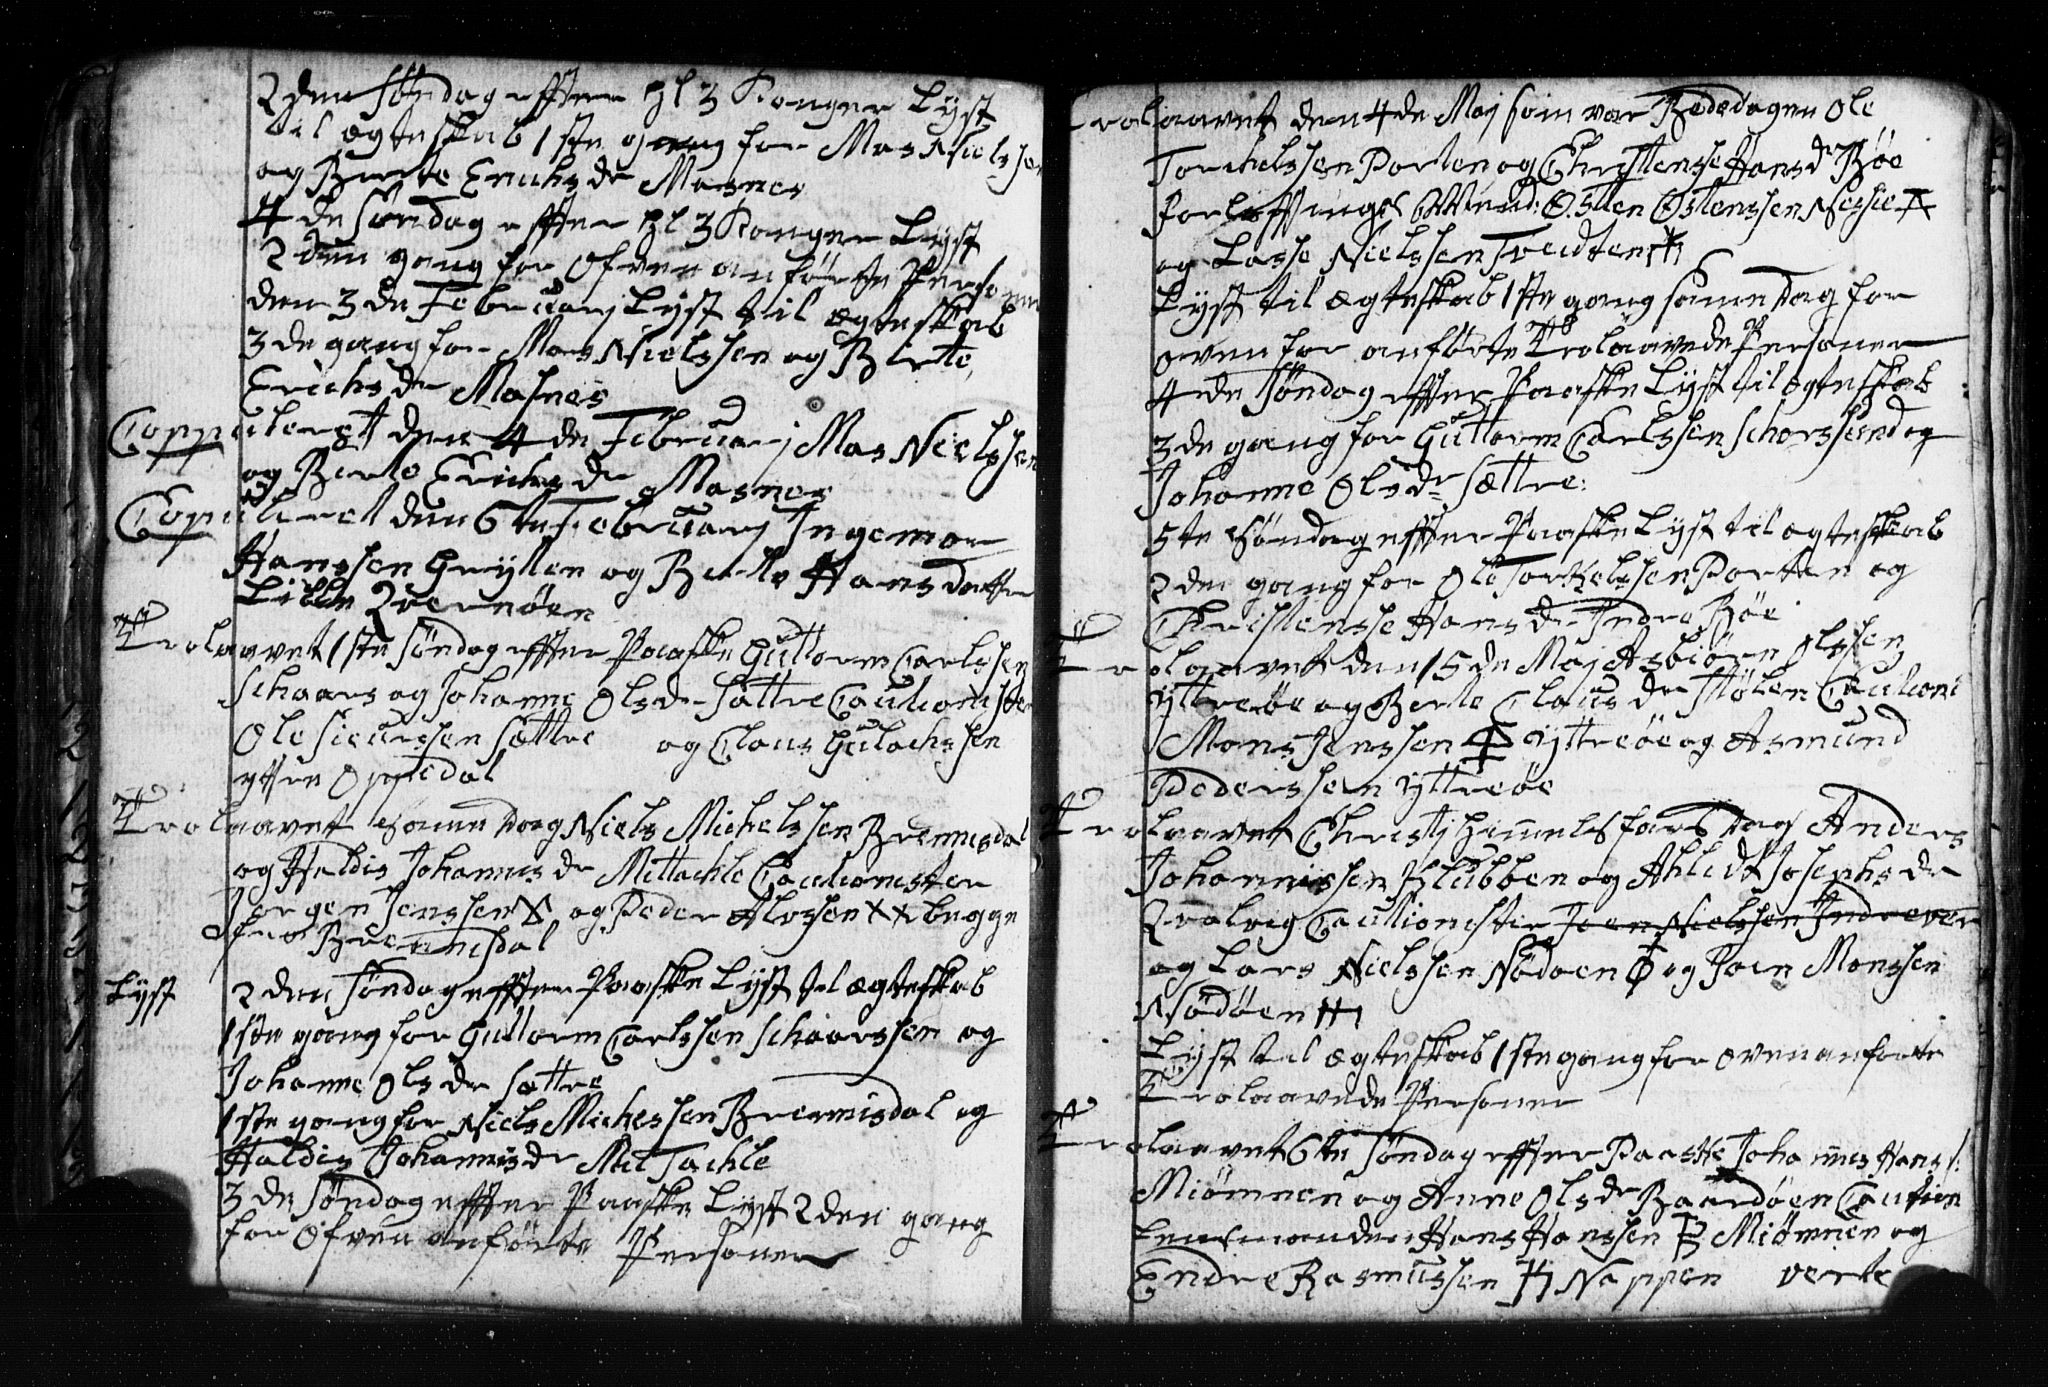 2den Søndag effter hl 3 Konger Lyst
til ægteskab 1ste gang for Mas Nielssen
og Berte Erichsdr Masnes
4de Søndag effter hl 3 Konger Lyst
2den gang for Ofvenanførte Personer
den 3de Februarj Lyst til ægteskab
3de gang for Mas Nielssen og Birte
Erichsdr Masnes
Coppuleret den 4de Februarj Mas Nielssen
og Berte Erichsdr Masnes
Copuleret den 6te Februarj Ingemar
Hanssen Gryllen og Berte Hansdatter
Lille Qvernøen
Trolaavet 1ste Søndag effter Paaske Guttorm Carlssen
Schaars og Johanne Olsdr Sættre Cautionister
Ole Siurssen Sættre og Claus Gulachssen
yttre Oppedal
Trolaavet samme Dag Niels Michelssen Bremnisdal
og Haldis Johannisdr Mittachle Cautionister
Jørgen Jenssen og Peder Alossen xx begge
fra Bremnisdal
Lyst 2den Søndag effter Paaske Lyst til ægteskab
1ste gang for Guttorm Carlssen Schaarssen og
Johanne Olsdr Sættre
1ste gang for Niels Michessen Bremnisdal og
Haldis Johannisdr MitTachle
3de Søndag effter Paaske Lyst 2den gang
for Ofven anførte Personer
Trolaavet den 4de Maj som var Bededagen Ole
Torchelssen Porten og Christensse Hansdr Bøe
forloffvings Østen Østenssen
og Lasse Nielssen Tredten
Lyst til ægteskab 1ste gang same Dag for
oven for anførte Trolaavede Personer
4de Søndag effter Paaske Lyst til ægteskab
3de gang for Guttorm Carlssen og
Johanne Olsdr Sættre
5te Søndag effter Paaske Lyst til ægteskab
2den gang for Ole Torkelssen Porten og
Christensse Hansdr Indre Bøe
Trolaavet den 15de Maj Asbiørn Olssen
yttreøe og Berte Clausdr Stølen Cautioni
Mons Jenssen yttreøe og Asmund
Pederssen yttreøe
Trolaavet Christj Himmelsfars Dag Anders
Johannissen Klubben og Ahlidt Josephsdr
Qvalvig Cautionister Joen Nielssen Indrever
og Lars Nielssen Nødøen og Joen Monssen
Nødøen
Lyst til ægteskab 1ste gang for ovenanførte
Trolaavede Personer
Trolaavet 6te Søndag effter Paaske Johannis Hanss:
Miømnen og Anne Olsdr Baardøen Caution
Lensmanden Hans Hanssen Miømnen og
Endre Rasmussen Nappen verte